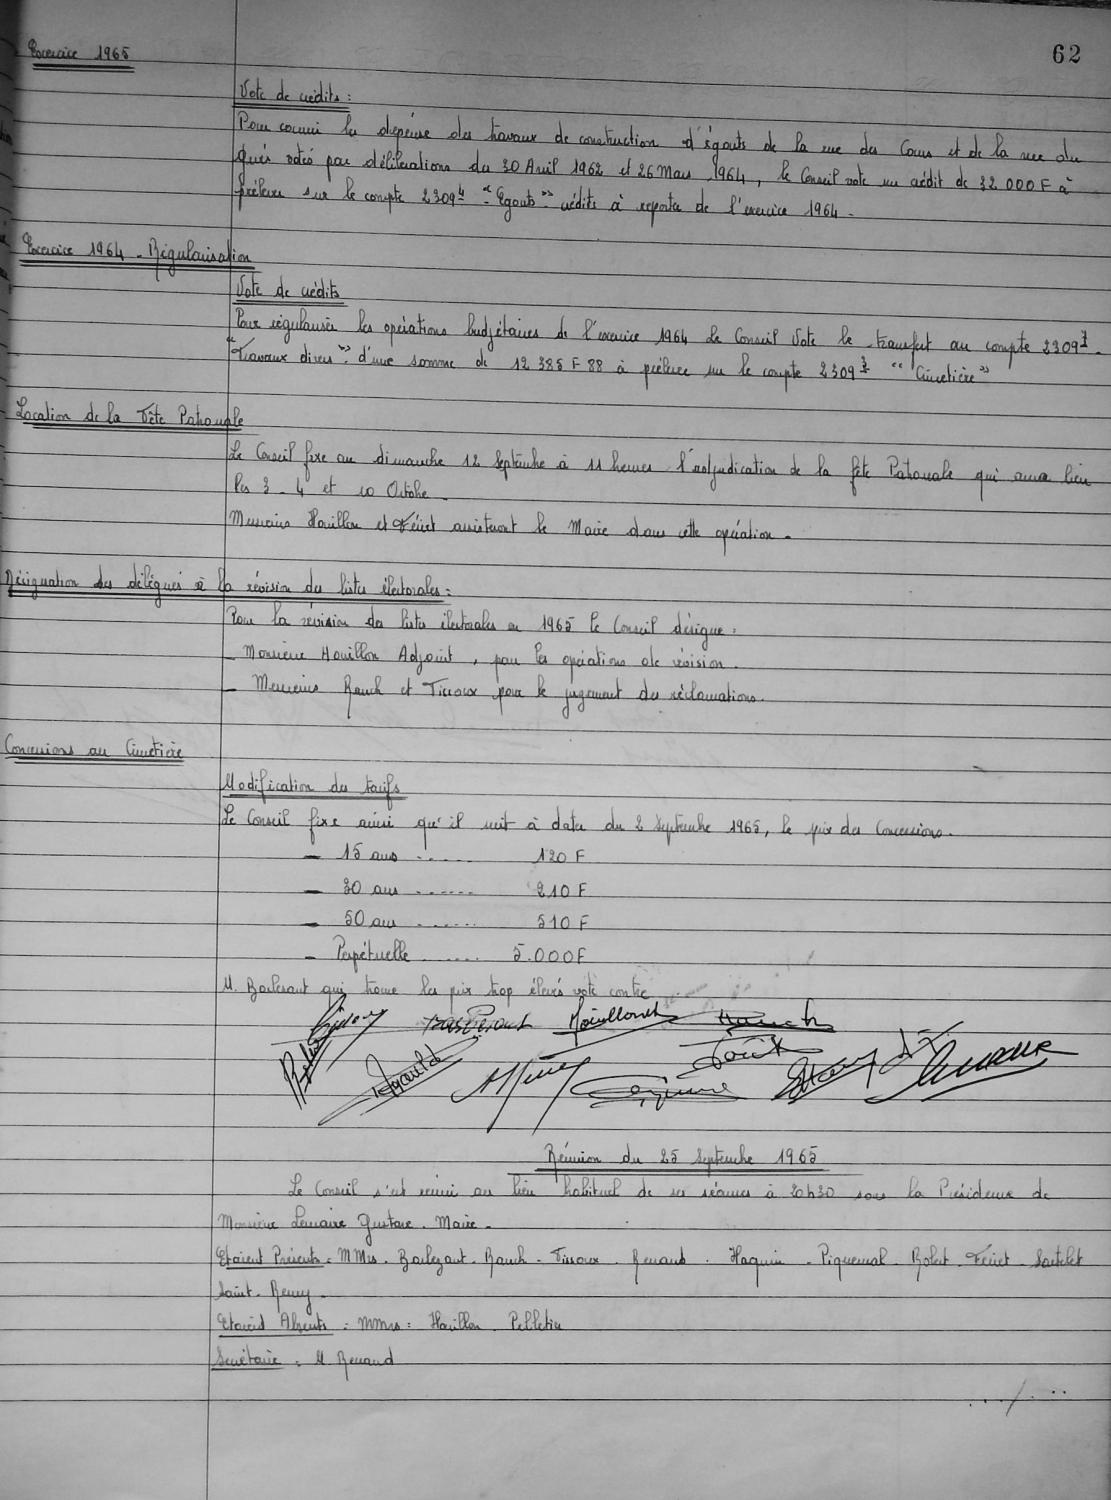 62
Exercice 1965
Vote de crédits :
Pour couvrir les dépense des travaux de construction d'égouts de la rue des Cours et de la rue du
Gués votés par délibérations du 30 Avril 1962 et 26 Mars 1964, le Conseil vote un crédit de 32 000 F à
prélever sur le compte 2309 4 " Egouts " crédits à reporter de l'exercice 1964 -
Exercice 1964 - Régularisation
Vote de crédits
Pour régulariser les opérations budgétaires de l'exercice 1964 le Conseil vote le transfert au compte 2309 7 -
" Travaux divers " d'une somme de 12 385 F 88 à prélever sur le compte 2309 3 " Cimetière "
Location de la Fête Patronale
Le Conseil fixe au dimanche 12 Septembre à 11 heures l'adjudication de la fête Patronale qui aura lieu
les 3 - 4 et 10 Octobre -
Messieurs Houillon et Fériet assisteront le Maire dans cette opération -
Désignation des délégués à la révision des listes électorales :
Pour la révision des listes électorales en 1965 le Conseil désigne :
- Monsieur Houillon Adjoint, pour les opérations de révision.
- Messieurs Rauch et Tissoux pour le jugement des réclamations.
Concessions au Cimetière
Modification des tarifs
Le Conseil fixe ainsi qu'il suit à dater du 2 Septembre 1965, le prix des Concessions.
- 15 ans ...... 120 F
- 30 ans ....... 210 F
- 50 ans ....... 510 F
- Perpétuelle ...... 5.000 F
M. Barlesant qui trouve les prix trop élevés vote contre
Réunion du 25 Septembre 1965
Le Conseil s'est réuni au lieu habituel de ses séances à 20h30 sous la Présidence de
Monsieur Lemaire Gustave - Maire -
Etaient Présents : MMrs. Barlezant - Rauch - Tissoux - Renaud - Haguin - Piquemal - Robert - Fériet - Sautelet
Saint-Remy -
Etaient Absents : MMrs : Houillon - Pelletier
Secrétaire : M. Renaud
.../...